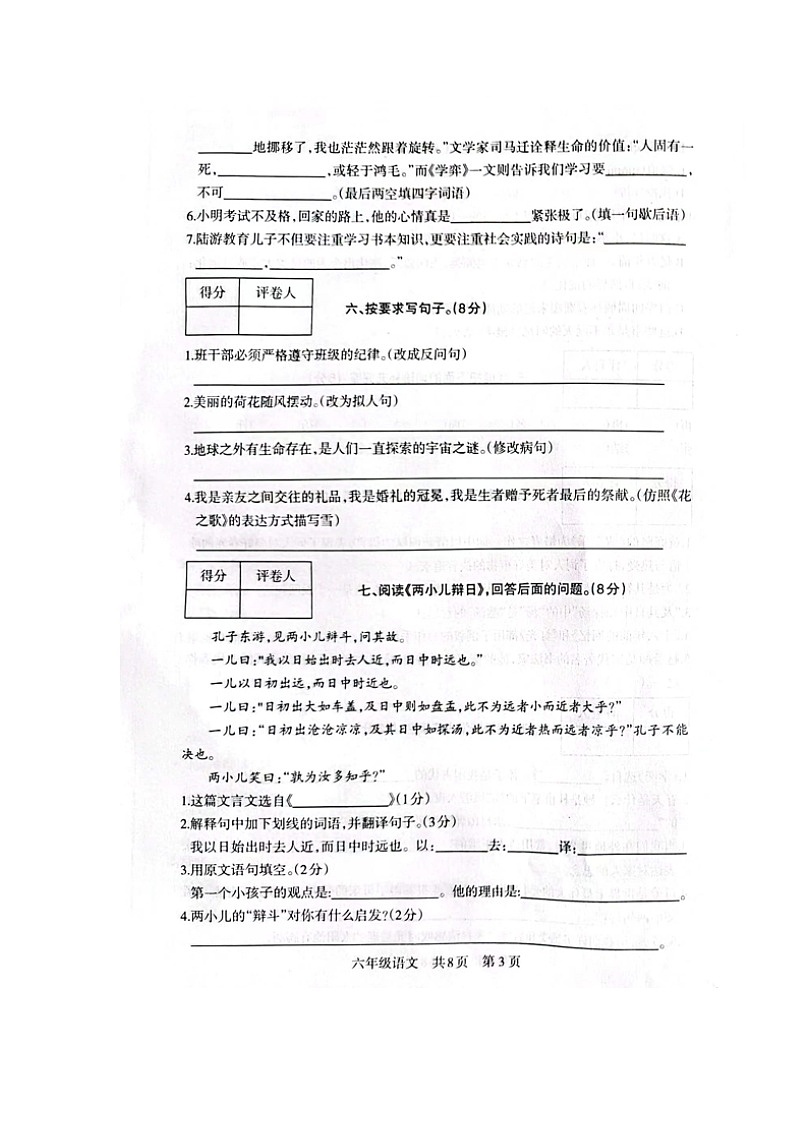 ________地挪移了，我也茫茫然跟着旋转。”文学家司马迁诠释生命的价值：“人固有一
死，________________，或轻于鸿毛。”而《学弈》一文则告诉我们学习要____________，
不可________________。（最后两空填四字词语）
6.小明考试不及格，回家的路上，他的心情真是____________紧张极了。（填一句歇后语）
7.陆游教育儿子不但要注重学习书本知识、更要注重社会实践的诗句是：“____________
__________，__________________。”
得分 评卷人
六、按要求写句子。（8分）
1.班干部必须严格遵守班级的纪律。（改成反问句）
2.美丽的荷花随风摆动。（改为拟人句）
3.地球之外有生命存在，是人们一直探索的宇宙之谜。（修改病句）
4.我是亲友之间交往的礼品，我是婚礼的冠冕，我是生者赠予死者最后的祭献。（仿照《花
之歌》的表达方式描写雪）
得分 评卷人
七、阅读《两小儿辩日》，回答后面的问题。（8分）
孔子东游，见两小儿辩斗，问其故。
一儿曰：“我以日始出时去人近，而日中时远也。”
一儿以日初出远，而日中时近也。
一儿曰：“日初出大如车盖，及日中则如盘盂，此不为远者小而近者大乎？”
一儿曰：“日初出沧沧凉凉，及其日中如探汤，此不为近者热而远者凉乎？”孔子不能
决也。
两小儿笑曰：“孰为汝多知乎？”
1.这篇文言文选自《______________》（1分）
2.解释句中加下划线的词语，并翻译句子。（3分）
我以日始出时去人近，而日中时远也。 以：________去：________译：________________
3.用原文语句填空。（2分）
第一个小孩子的观点是：________________。 他的理由是：________________________。
4.两小儿的“辩斗”对你有什么启发？（2分）
____________________________________________________________________。
六年级语文 共8页 第3页